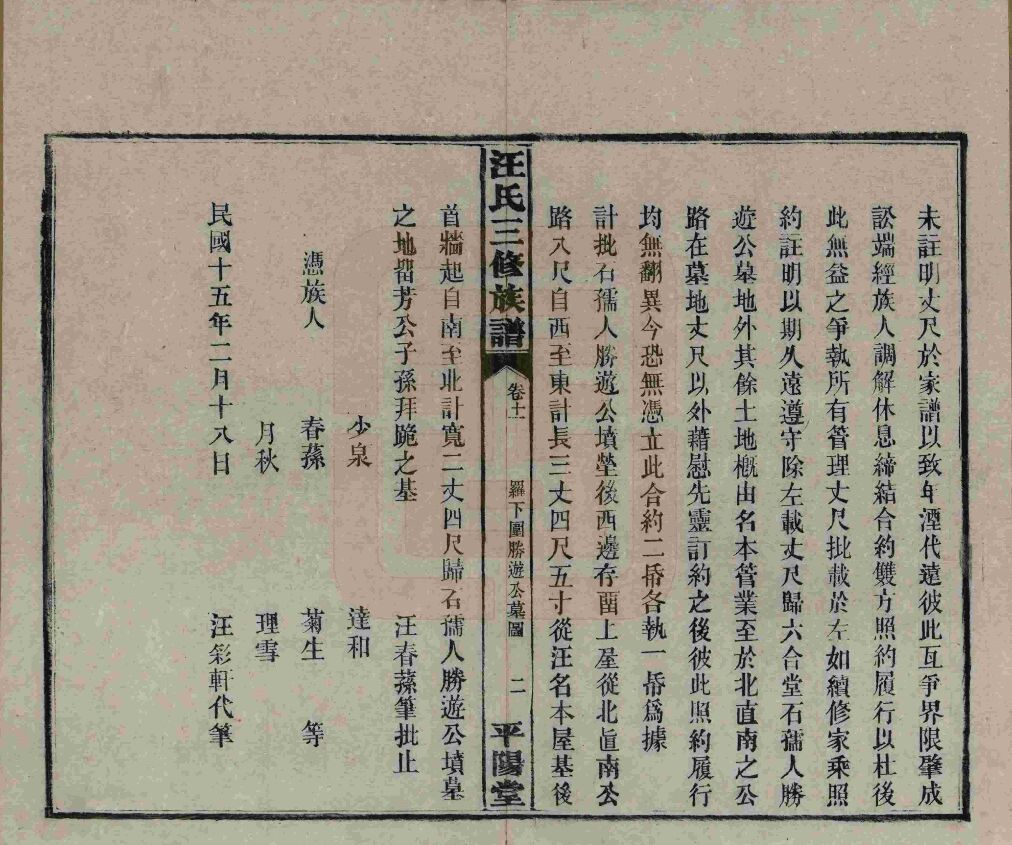 未註明丈尺於家譜以致年湮代遠彼此互爭界限肇成
訟端經族人調解休息締結合約雙方照約履行以杜後
此無益之爭執所有管理丈尺批載於左如續修家乘照
約註明以期久遠遵守除左載丈尺歸六合堂石孺人勝
遊公墓地外其餘土地概由名本管業至於北直南之公
路在墓地丈尺以外藉慰先靈訂約之後彼此照約履行
均無翻異今恐無憑立此合約二帋各執一帋爲據
計批石孺人勝遊公墳塋後西邊存畱上屋從北直南公
路八尺自西至東計長三丈四尺五寸從汪名本屋基後
汪氏三修族譜 卷十一 羅下圍勝遊公墓圖 二 平陽堂
首牆起自南至北計寬二丈四尺歸石孺人勝遊公墳墓
之地畱芳公子孫拜跪之基 汪春蓀筆批止
少泉 達和
憑族人 春蓀 菊生 等
月秋 理雪
民國十五年二月十八日 汪彩軒代筆